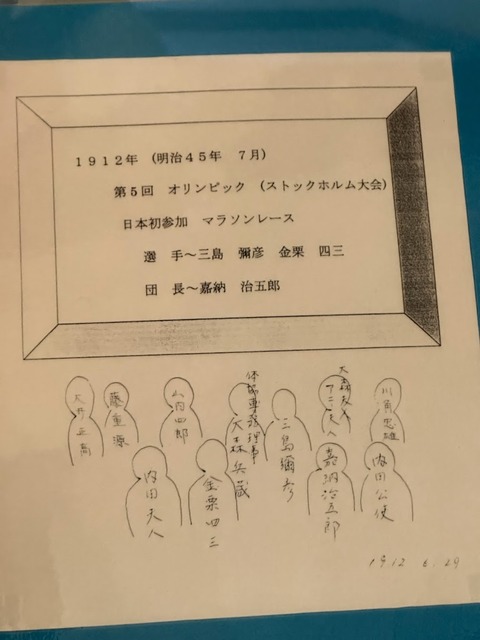 1912年 (明治45年 7月)
第5回 オリンピック (ストックホルム大会)
日本初参加 マラソンレース
選 手～三島 彌彦 金栗 四三
団 長～嘉納 治五郎
藤重源
山内四郎
体協専務理事
大森兵蔵
三島彌彦
大森夫人
アニ夫人
川角忠雄
内田夫人
金栗四三
嘉納治五郎
内田公使
1912 6.29